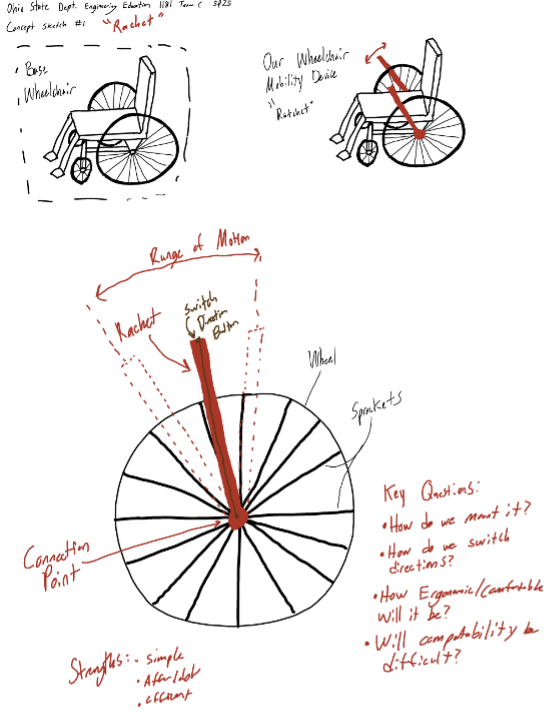 Ohio State Dept. Engineering Education 1181 Team C SP23
Concept Sketch #1 "Rachet"
Base
Wheelchair
Our Wheelchair
Mobility Device
"Ratchet"
Range of Motion
Switch
Direction
Button
Rachet
Wheel
Sprockets
Connection
Point
Key Questions:
• How do we mount it?
• How do we switch
directions?
• How Ergonomic/Comfortable
will it be?
• Will compatability be
difficult?
Strengths: - simple
• Affordable
• efficient